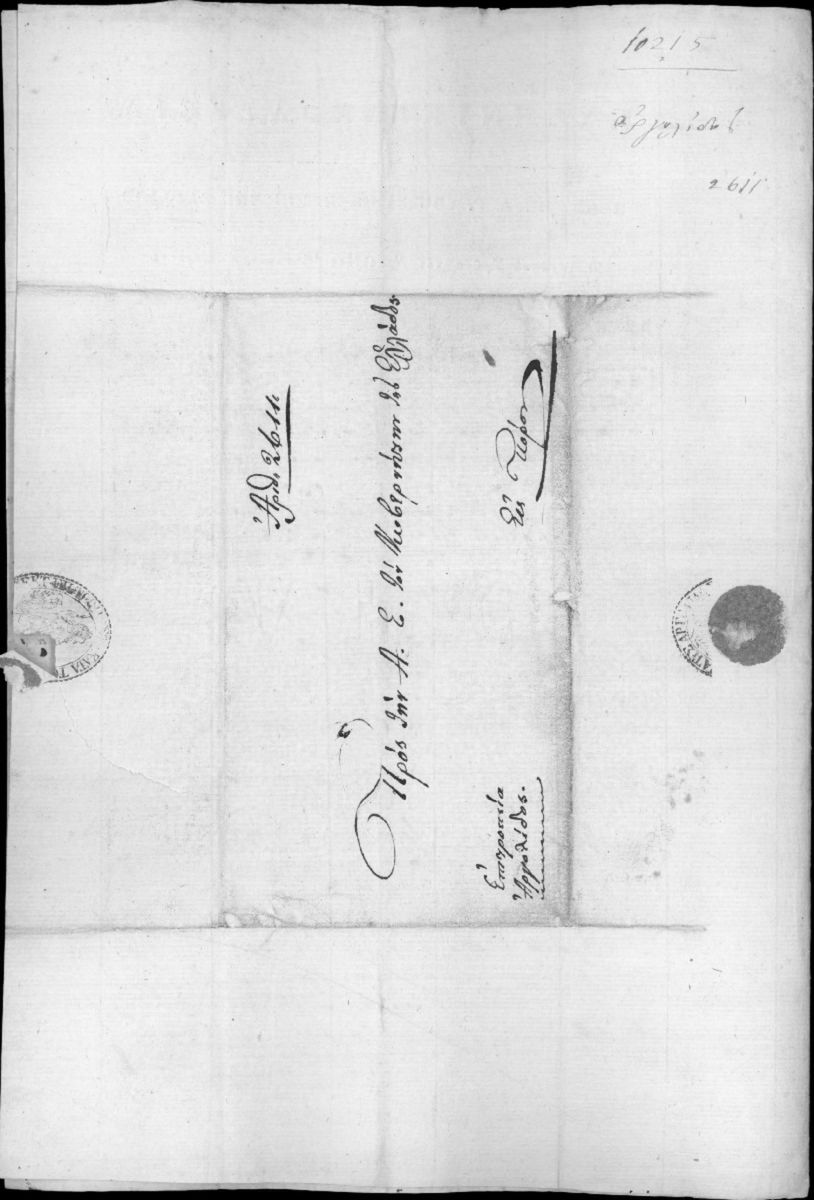 10215
Ἀργολίδος
2611
Ἀριθ. 2611.
Πρὸς τὴν Α. Ε. τὸν Κυβερνήτην τῆς Ἑλλάδος.
Εἰς Πόρον
Ἐπιτροπεία
Ἀργολίδος.